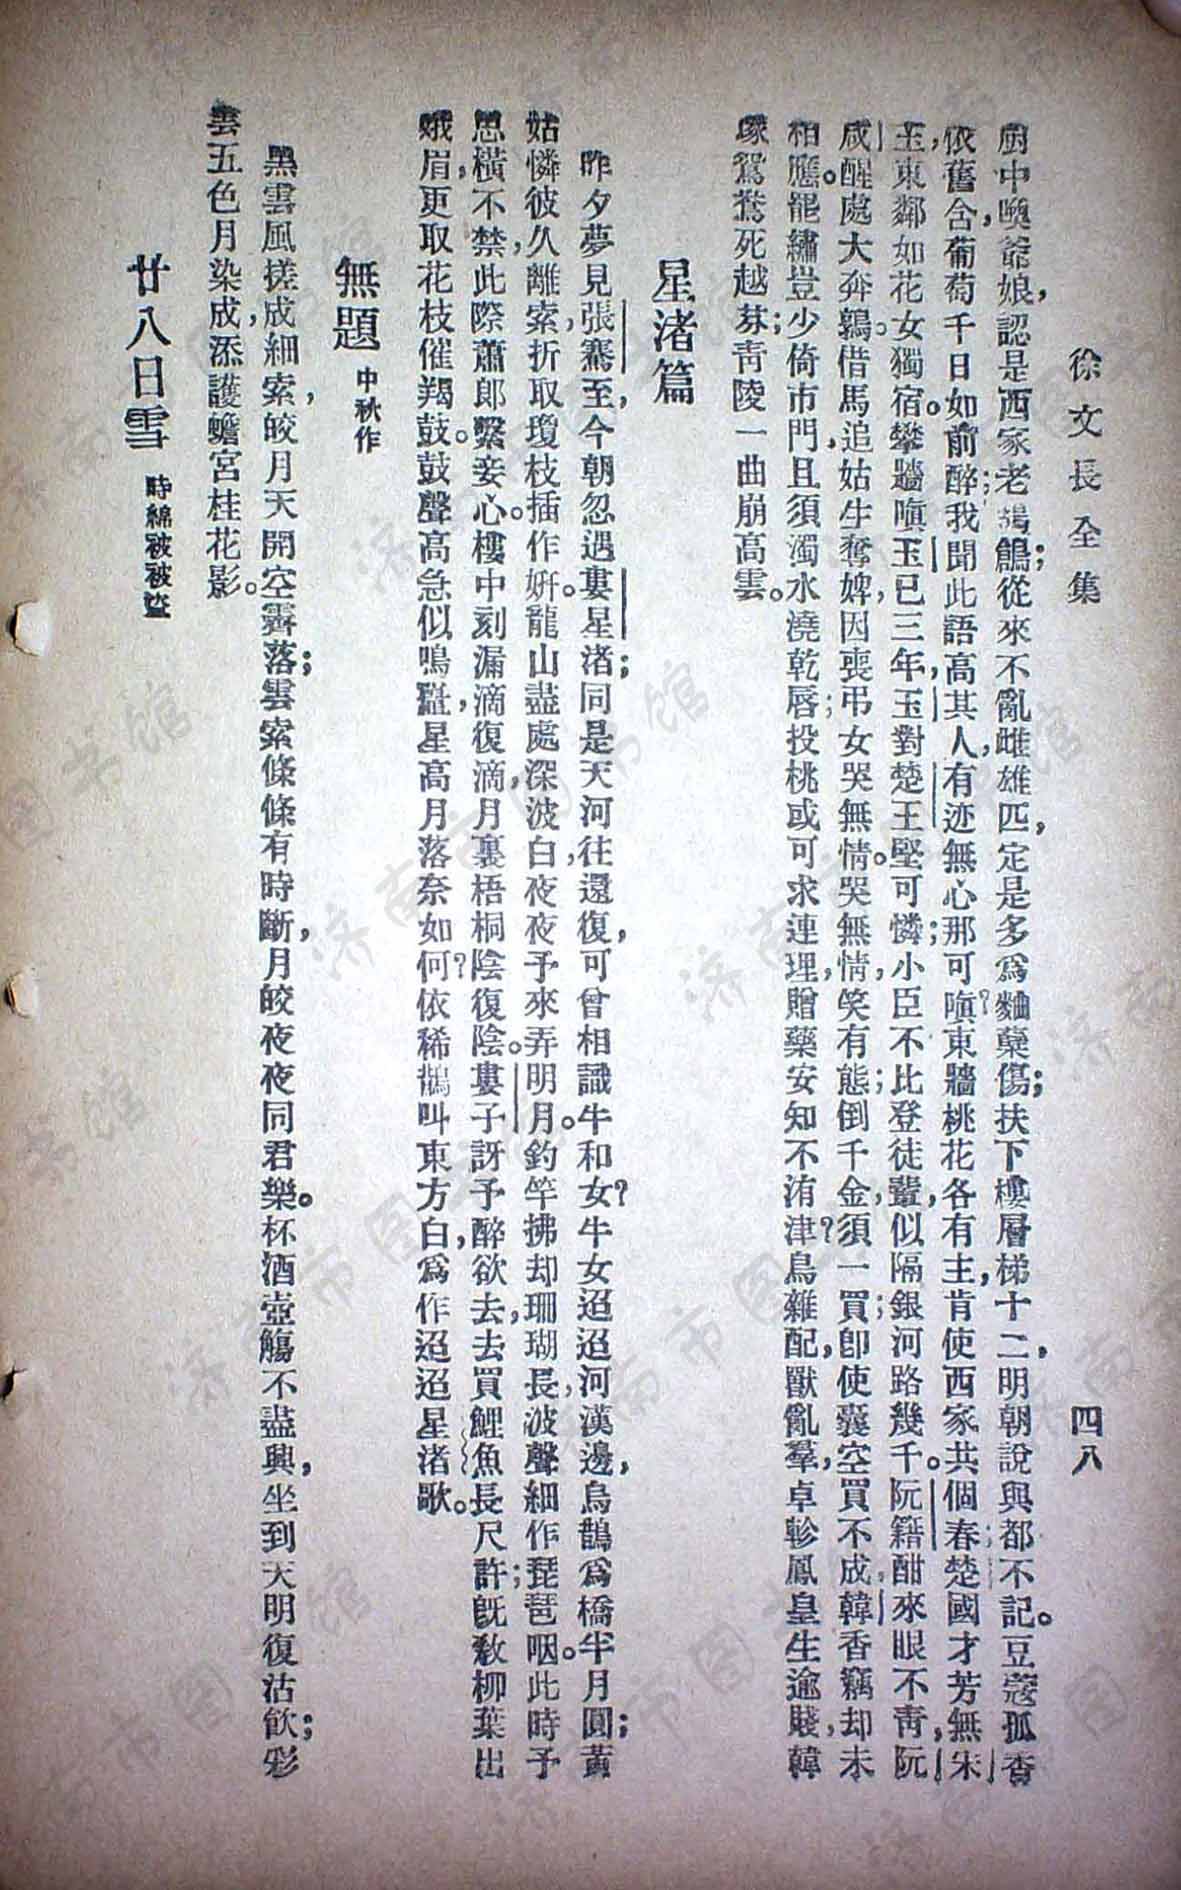 徐文長全集
四八
廚中喚爺娘，認是西家老鴇鶬；從來不亂雌雄匹，定是多為麯糵傷；扶下樓層梯十二，明朝說與都不記。豆蔻孤香
依舊含葡萄，千日如前醉；我聞此語高其人，有迹無心那可嗔？東牆桃花各有主，肯使西家共個春；楚國才芳無宋
玉，東鄰如花女獨宿。攀牆嗔玉已三年，玉對楚王堅可憐；小臣不比登徒輩，似隔銀河路幾千。阮籍酣來眼不青，阮
咸醒處大奔鶉。借馬追姑生奪婢，因喪弔女哭無情。哭無情，笑有態；倒千金，須一買；卽使囊空買不成，韓香竊却未
相應。罷繡豈少倚市門，且須濁水澆乾唇；投桃或可求連理，贈藥安知不洧津？鳥雜配，獸亂羣，卓軫鳳皇生逾賤，韓
塚鴛鴦死越芬；靑陵一曲崩高雲。
星渚篇
昨夕夢見張騫至，今朝忽遇婁星渚；同是天河往還復，可曾相識牛和女？牛女迢迢河漢邊，烏鵲為橋半月圓；黃
姑憐彼久離索，折取瓊枝插作姸。龍山盡處深波白，夜夜予來弄明月。釣竿拂却珊瑚長，波聲細作琵琶咽。此時予
思橫不禁，此際蕭郎繫妾心。樓中刻漏滴復滴，月裏梧桐陰復陰。婁子訝予醉欲去，去買鯉魚長尺許；旣敎柳葉出
娥眉，更取花枝催羯鼓。鼓聲高急似鳴鼉，星高月落奈如何？依稀鵲叫東方白，為作迢迢星渚歌。
無題 中秋作
黑雲風搓成細索，皎月天開空霽落；雲索條條有時斷，月皎夜夜同君樂。杯酒壺觴不盡興，坐到天明復沽飮；彩
雲五色月染成，添護蟾宮桂花影。
廿八日雪 時綿被被盜